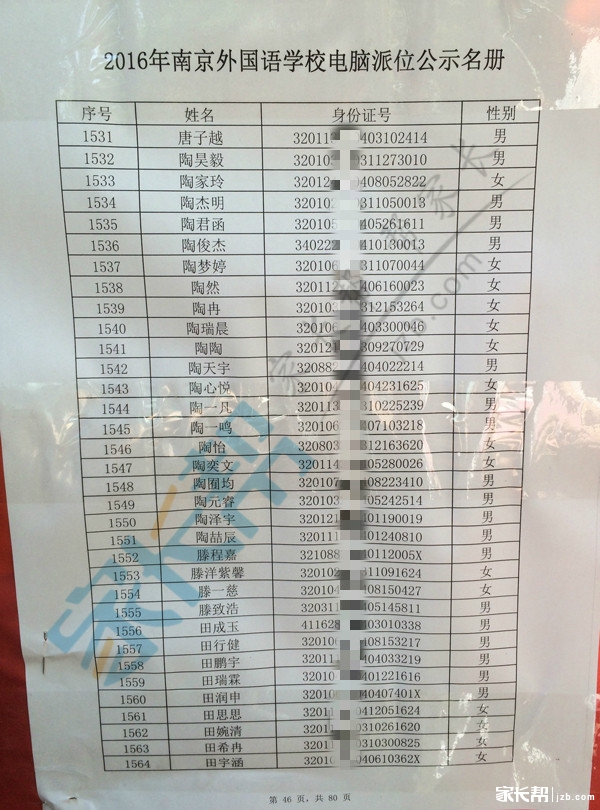 2016年南京外国语学校电脑派位公示名册
序号 姓名 身份证号 性别
1531 唐子越 32011 403102414 男
1532 陶昊毅 32010 311273010 男
1533 陶家玲 32012 408052822 女
1534 陶杰明 32010 311050013 男
1535 陶君函 32010 405261611 男
1536 陶俊杰 34022 410130013 男
1537 陶梦婷 32010 311070044 女
1538 陶然 32011 406160023 女
1539 陶冉 32010 312153264 女
1540 陶瑞晨 32010 403300046 女
1541 陶陶 32012 309270729 女
1542 陶天宇 32088 404022214 男
1543 陶心悦 32010 404231625 女
1544 陶一凡 32011 310225239 男
1545 陶一鸣 32010 07103218 男
1546 陶怡 320803 12163620 女
1547 陶奕文 320114 05280026 女
1548 陶囿均 320107 08223410 男
1549 陶元睿 320103 05242514 男
1550 陶泽宇 320121 01190019 男
1551 陶喆辰 32011 01240810 男
1552 滕程嘉 321088 0112005X 男
1553 滕洋紫馨 32010 11091624 女
1554 滕一慈 32010 08150427 女
1555 滕致浩 320311 05145811 男
1556 田成玉 411628 03010338 男
1557 田行健 32010 08153217 男
1558 田鹏宇 32011 04033219 男
1559 田瑞霖 32010 01221616 男
1560 田润申 32010 0407401X 男
1561 田思思 32011 412051624 女
1562 田婉清 32011 310261620 女
1563 田希冉 32011 310300825 女
1564 田宇涵 32010 40610362X 女
第 46 页，共 80 页
家长帮 jzb.com